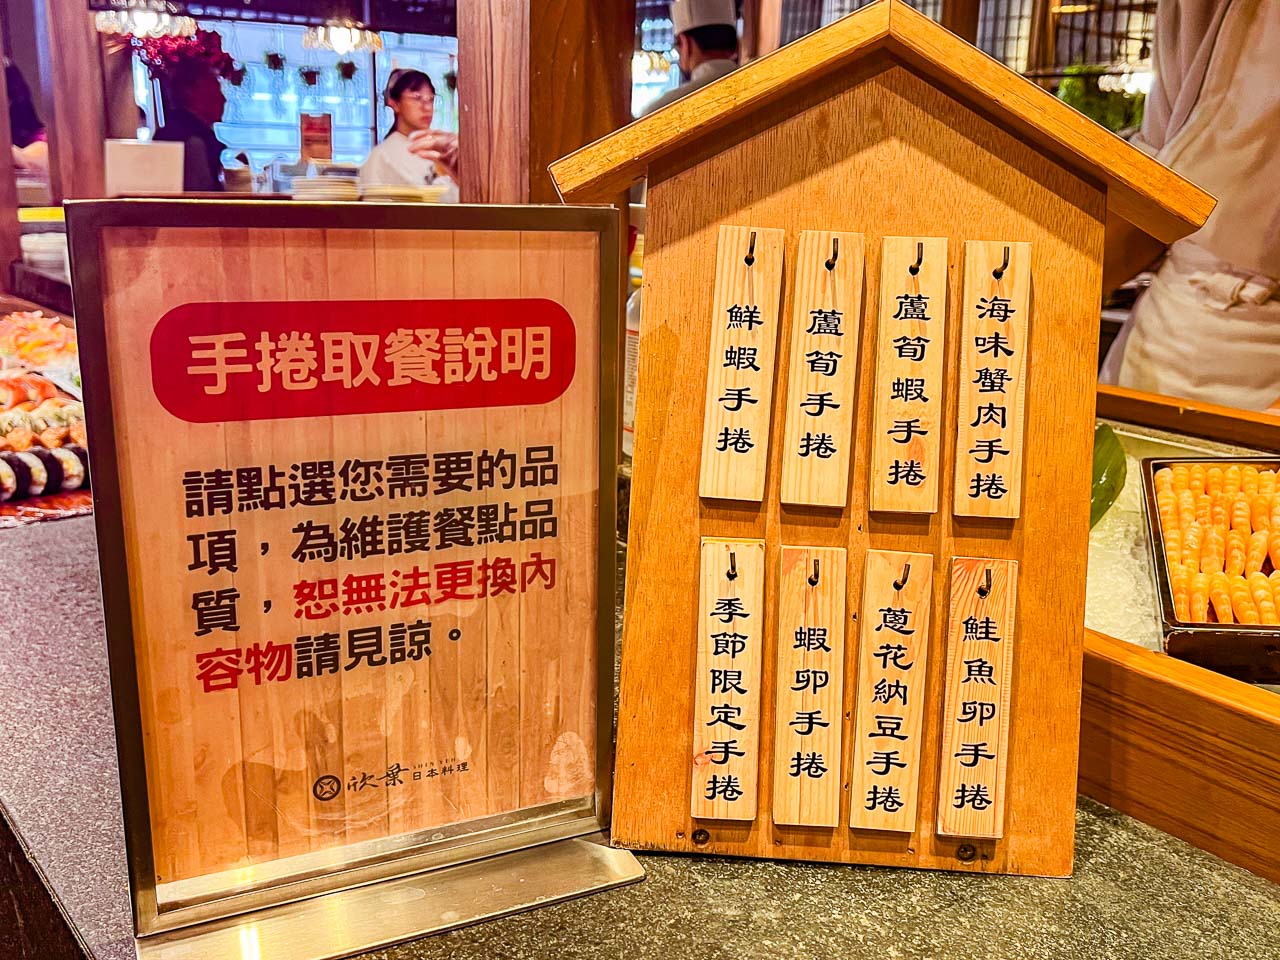 手捲取餐說明
請點選您需要的品
項，為維護餐點品
質，恕無法更換內
容物請見諒。
欣葉 SHIN YEH 日本料理
鮮蝦手捲
蘆筍手捲
蘆筍蝦手捲
海味蟹肉手捲
季節限定手捲
蝦卵手捲
蔥花納豆手捲
鮭魚卵手捲